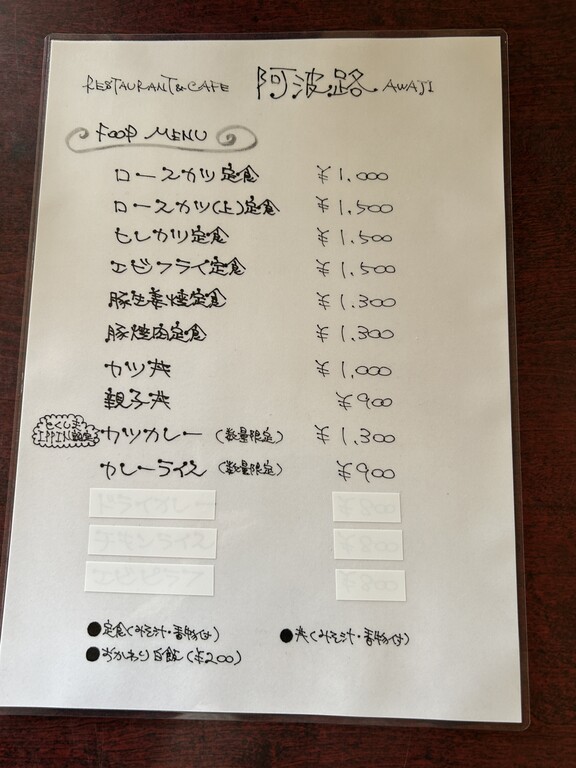 RESTAURANT&CAFE 阿波路 AWAJI
FOOD MENU
ロースカツ定食 ¥1,000
ロースカツ(上)定食 ¥1,500
ヒレカツ定食 ¥1,500
エビフライ定食 ¥1,500
豚生姜焼定食 ¥1,300
豚焼肉定食 ¥1,300
カツ丼 ¥1,000
親子丼 ¥900
とくしま
IPPIN認定
カツカレー (数量限定) ¥1,300
カレーライス (数量限定) ¥900
ドライカレー ¥800
チキンライス ¥800
エビピラフ ¥800
●定食(みそ汁・香物付) ●丼(みそ汁・香物付)
●おかわり白飯(¥200)